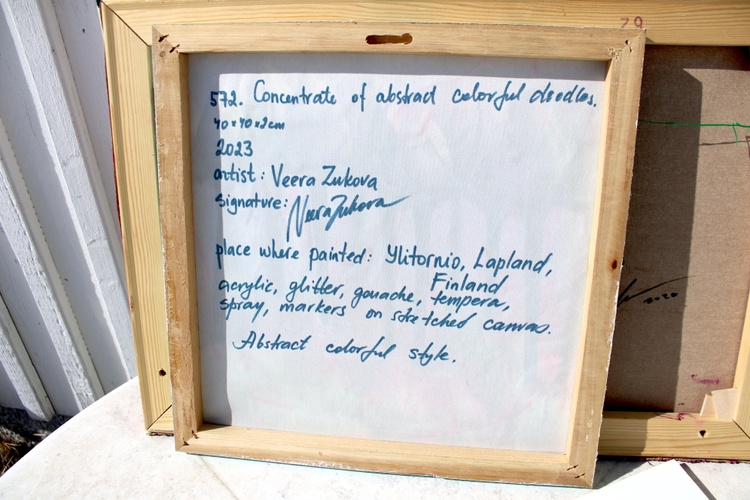 79
572. Concentrate of abstract colorful doodles.
40x40x2cm
2023
artist: Veera Zukova
signature: Veera Zukova
place where painted: Ylitornio, Lapland,
Finland
acrylic, glitter, gouache, tempera,
spray, markers on stretched canvas.
Abstract colorful style.
2020